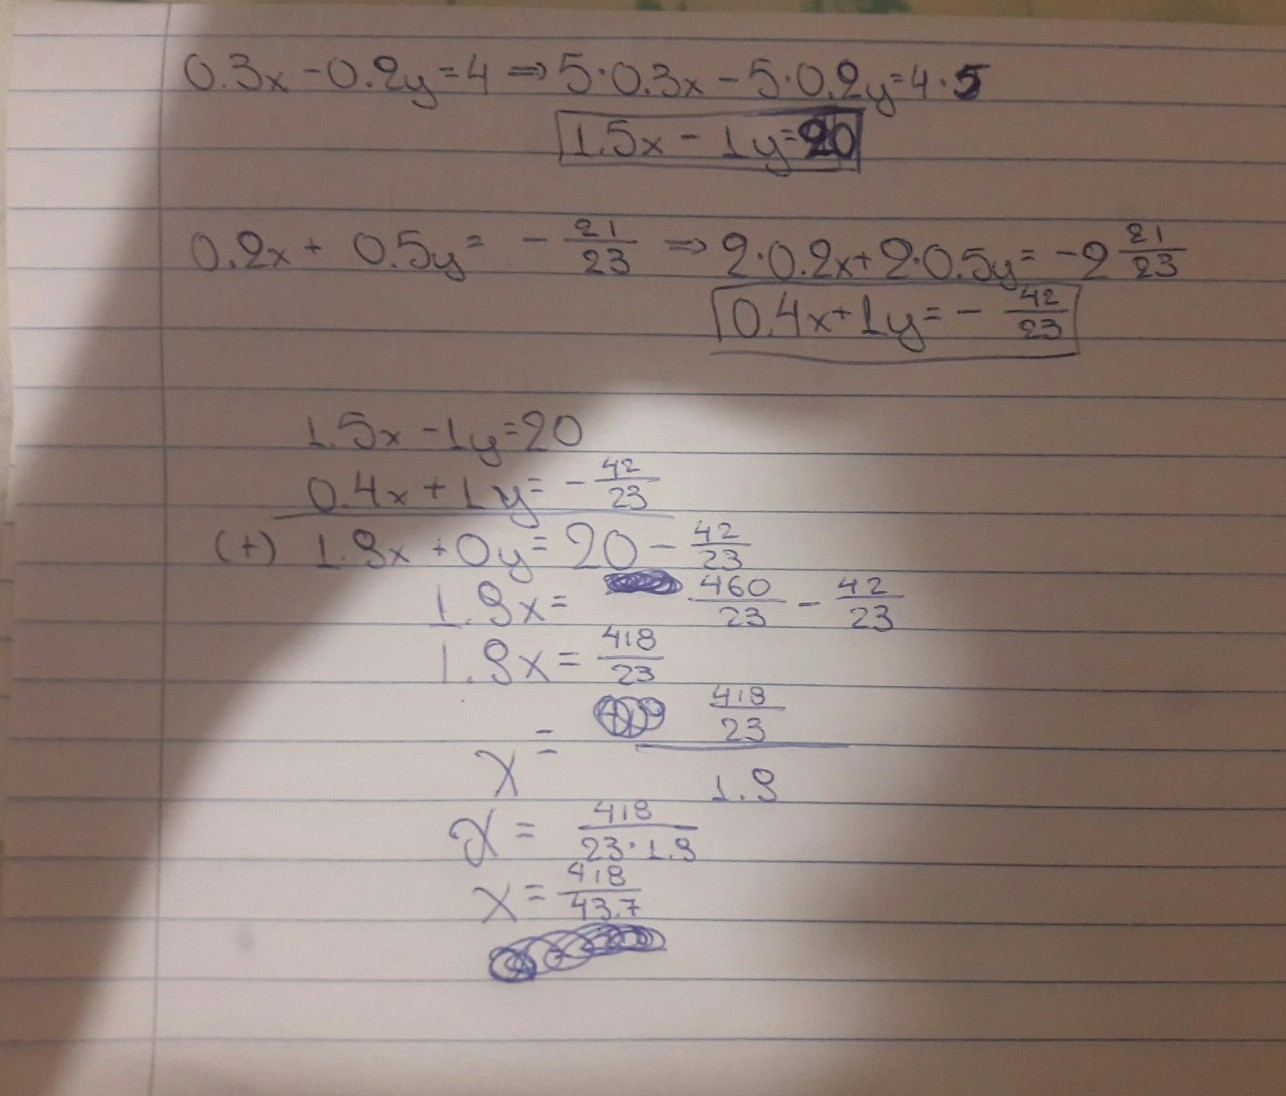 0.3x - 0.2y = 4 ⇒ 5·0.3x - 5·0.2y = 4·5
1.5x - 1y = 20
0.2x + 0.5y = - 21/23 ⇒ 2·0.2x + 2·0.5y = -2 21/23
0.4x + 1y = - 42/23
1.5x - 1y = 20
0.4x + 1y = - 42/23
(+) 1.9x + 0y = 20 - 42/23
1.9x = 460/23 - 42/23
1.9x = 418/23
x = 418/23 / 1.9
x = 418/23·1.9
x = 418/43.7